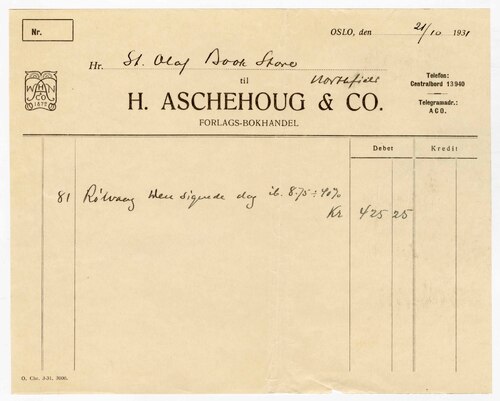 Nr.
OSLO, den 21/10 1931
Hr. St. Olaf Book Store
til Northfield
W H N
& CO.
1872
H. ASCHEHOUG & CO.
FORLAGS-BOKHANDEL
Telefon:
Centralbord 13 940
Telegramadr.:
ACO.
Debet Kredit
81 Rölvaag Den signede dag ib. 8.75 ÷ 40%
Kr 425 25
O. Chr. 3-31. 3000.